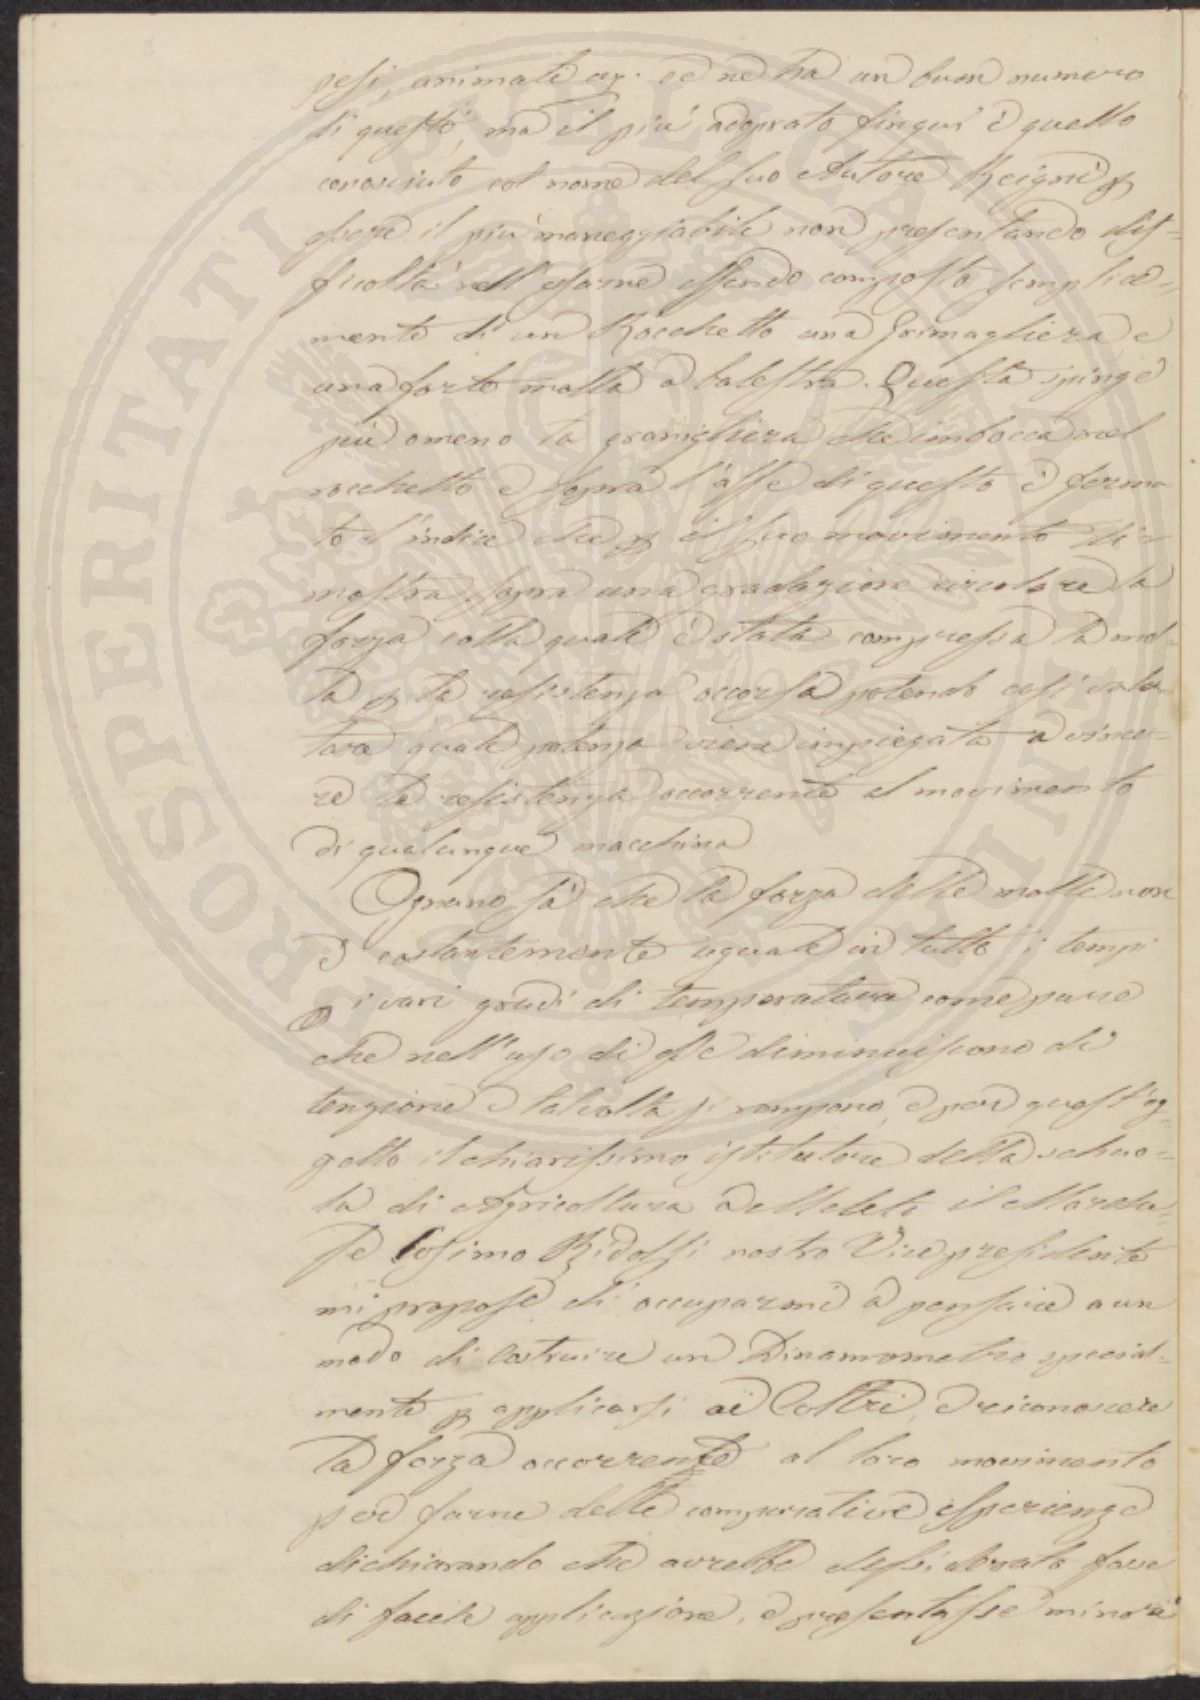 pesi, animate ec. ed ne ha un buon numero
di questi, ma il più adoprato finquì è quello
conosciuto col nome del suo Autore Reignié p
essere il più maneggiabile non presentando dif=
ficoltà nell'usarne essendo composto semplice=
mente di un Rocchetto una Grimagliera e
una forte molla a balestra. Questa spinge
più o meno la gramigliera che imbocca nel
rocchetto e sopra l'asse di questo è ferma
to l'indice che p il suo movimento di=
mostra sopra una gradazione circolare la
forza colla quale è stata compressa la mol=
la p la resistenza occorsa potendo così valu
tare quale potenza viene impiegata a vince=
re la resistenza occorrente al movimento
di qualunque macchina
Ognuno sà che la forza delle molle non
è costantemente uguale in tutti i tempi
p i vari gradi di temperatura come pure
che nell'uso di esse diminuiscono di
tenzione e talvolta si rompono, e per quest'og=
getto il chiarissimo istitutore della schuo=
la di Agricoltura a Meleto il Marche=
se Cosimo Ridolfi nostro Vice presidente
mi propose di occuparmi a pensare a un
modo di Costruire un Dinamometro special=
mente p applicarsi ai Coltri, e riconoscere
la forza occorrente al loro movimento
per farne delle comparative esperienze
dichiarando che avrebbe dessiderato fosse
di facile applicazione, e presentasse minore